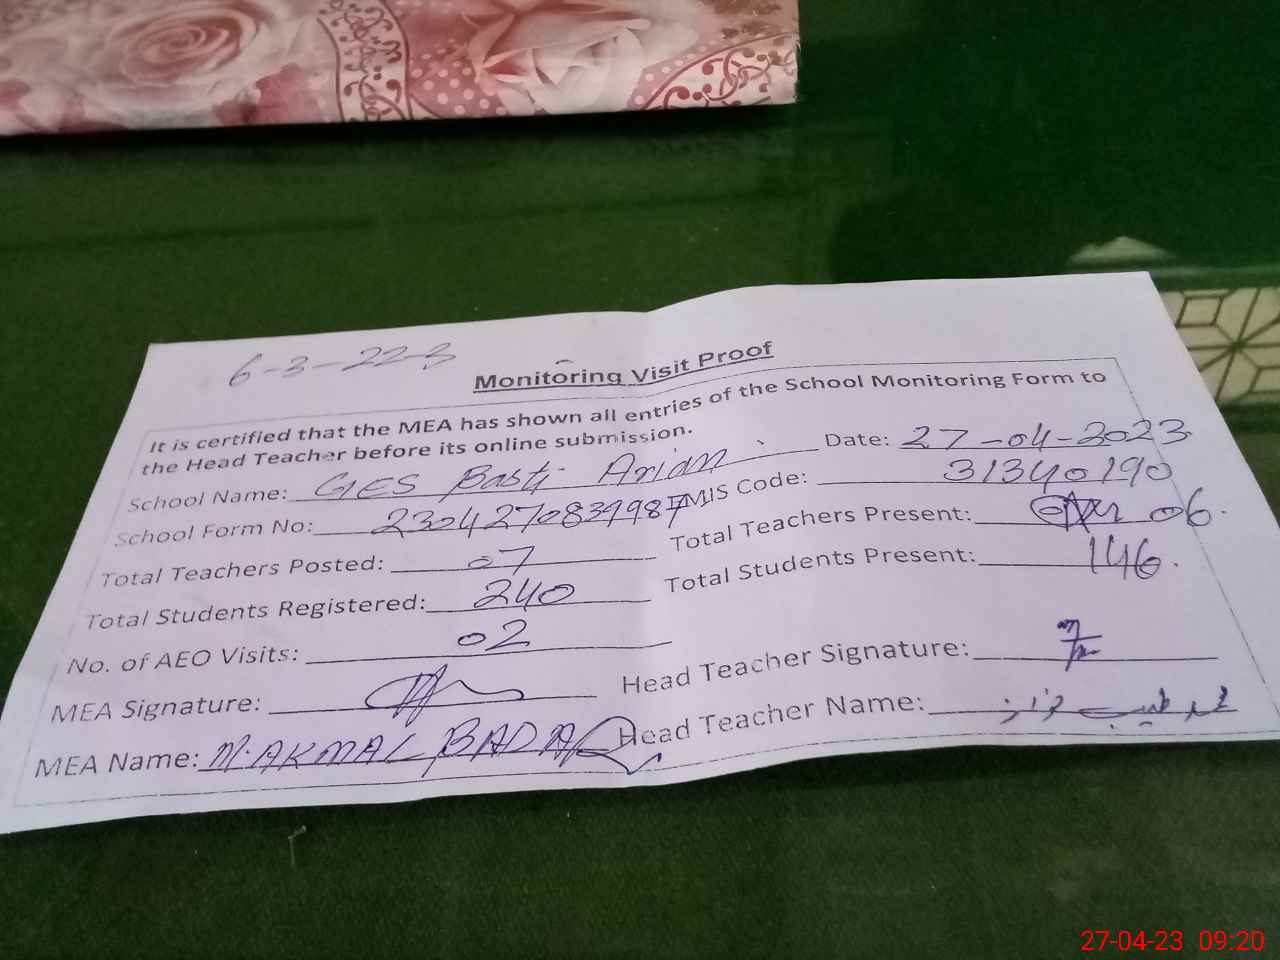 6-3-22-3
Monitoring Visit Proof
It is certified that the MEA has shown all entries of the School Monitoring Form to
the Head Teacher before its online submission.
Date: 27-04-2023
School Name: GES Basti Arian
EMIS Code: 31340190
School Form No:
Total Teachers Present: 06
Total Teachers Posted: 07
Total Students Present: 146
Total Students Registered: 240
No. of AEO Visits: 02
Head Teacher Signature:
MEA Signature:
Head Teacher Name:
MEA Name: M. AKMAL
27-04-23 09:20